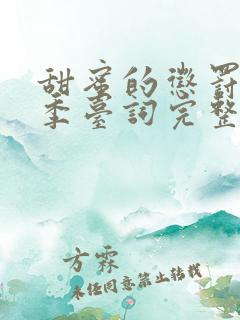 甜蜜的懲罰
季臺詞完整
方霖
未经同意禁止转载